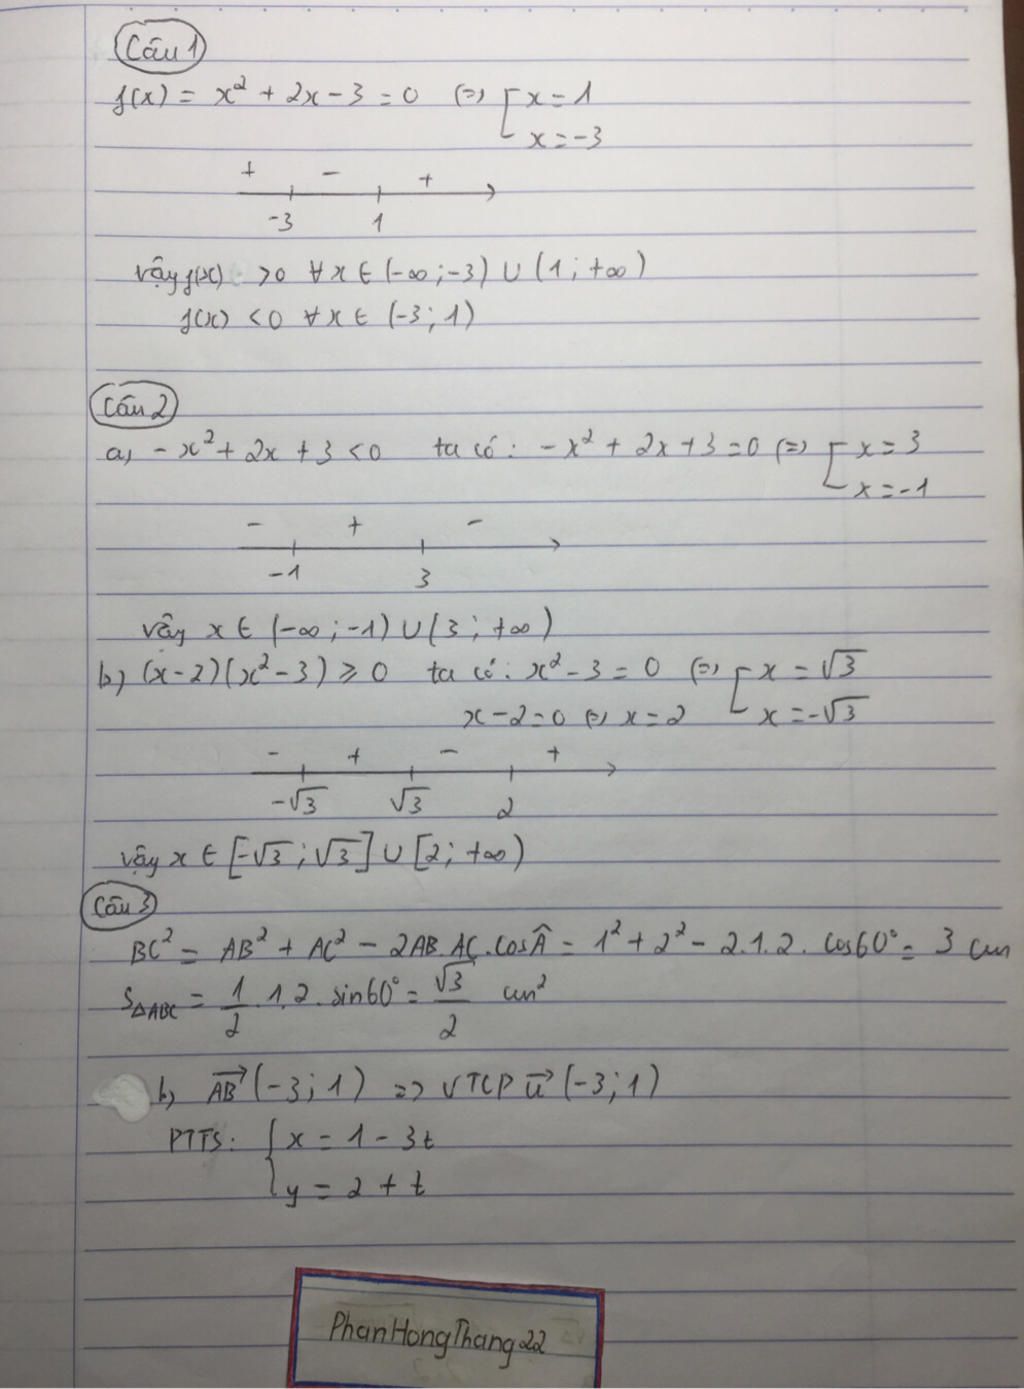 Câu 1
f(x) = x² + 2x - 3 = 0 (=) [ x = 1
x = -3
+ - +
-3 1
vậy f(x) >0 ∀x ∈ (-∞; -3) ∪ (1; +∞)
f(x) <0 ∀x ∈ (-3; 1)
Câu 2
a, -x² + 2x + 3 <0 ta có: -x² + 2x + 3 = 0 (=) [ x = 3
x = -1
- + -
-1 3
vậy x ∈ (-∞; -1) ∪ (3; +∞)
b) (x-2)(x²-3) ⩾ 0 ta có: x² - 3 = 0 (=) [ x = √3
x - 2 = 0 (=) x = 2 x = -√3
- + - +
-√3 √3 2
vậy x ∈ [-√3; √3] ∪ [2; +∞)
Câu 3
BC² = AB² + AC² - 2AB.AC.cosÂ = 1² + 2² - 2.1.2.cos60° = 3 cm
S△ABC = 1/2 .1.2.sin60° = √3/2 cm²
b, AB→ (-3; 1) => VTCP u→ (-3; 1)
PTTS: { x = 1 - 3t
y = 2 + t
PhanHongThang22